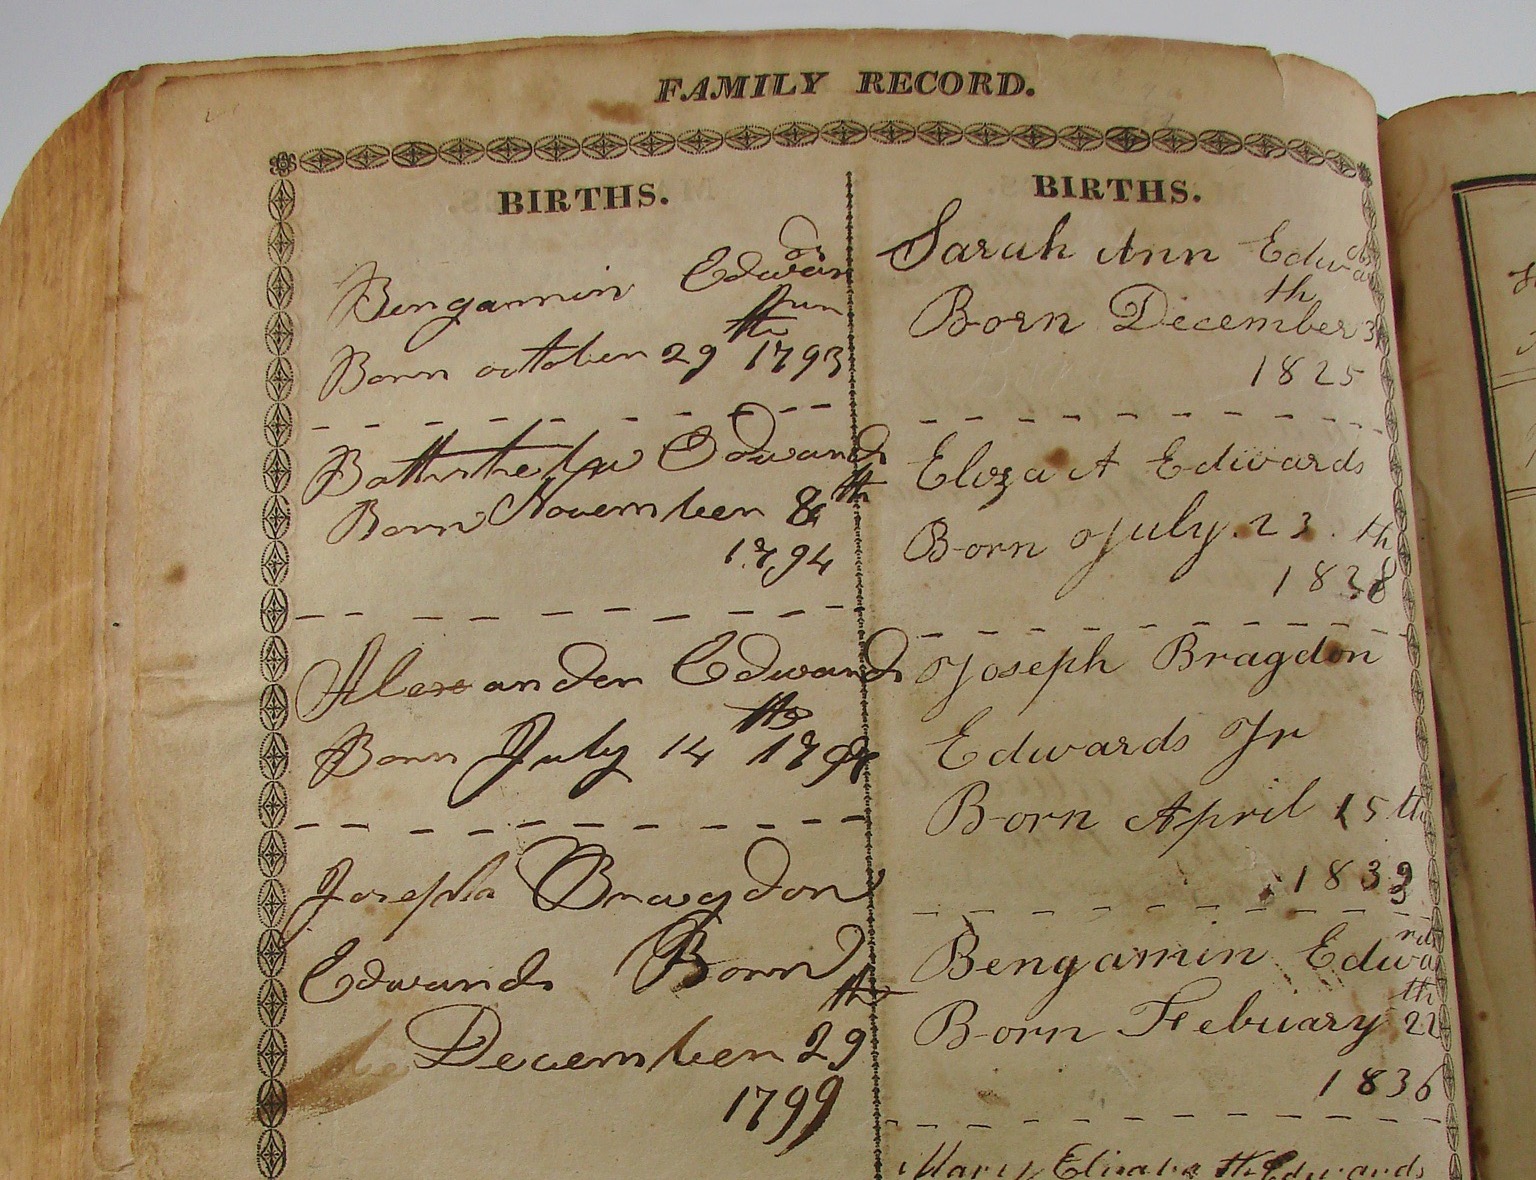 FAMILY RECORD.
BIRTHS.
Bengamin Edwards
Jun
Born october 29 th 1793
Edwards
Born November 8 th
1794
Alexander Edwards
Born July 14 th
Joseph Bragdon
Edwards Born
December 29 th
1799
BIRTHS.
Sarah Ann Edwards
Born December th
1825
Eliza A Edwards
Born July 23 th
Joseph Bragdon
Edwards Jr
Born April 15 th
Bengamin Edward
Born Febuiary 22 th
1836
Mary Elizabeth Edwards